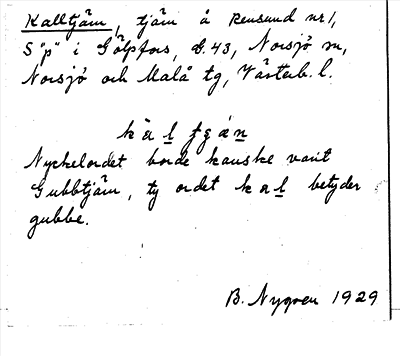 Kalltjärn, tjärn å Rensund nr 1,
S "p" i Gölpfors, G. 43, Norsjö sn,
Norsjö och Malå tg, Västerb. l.
kàl tjän
Nyckelordet borde kanske varit
Gubbtjärn, ty ordet kal betyder
gubbe.
B. Nygren 1929